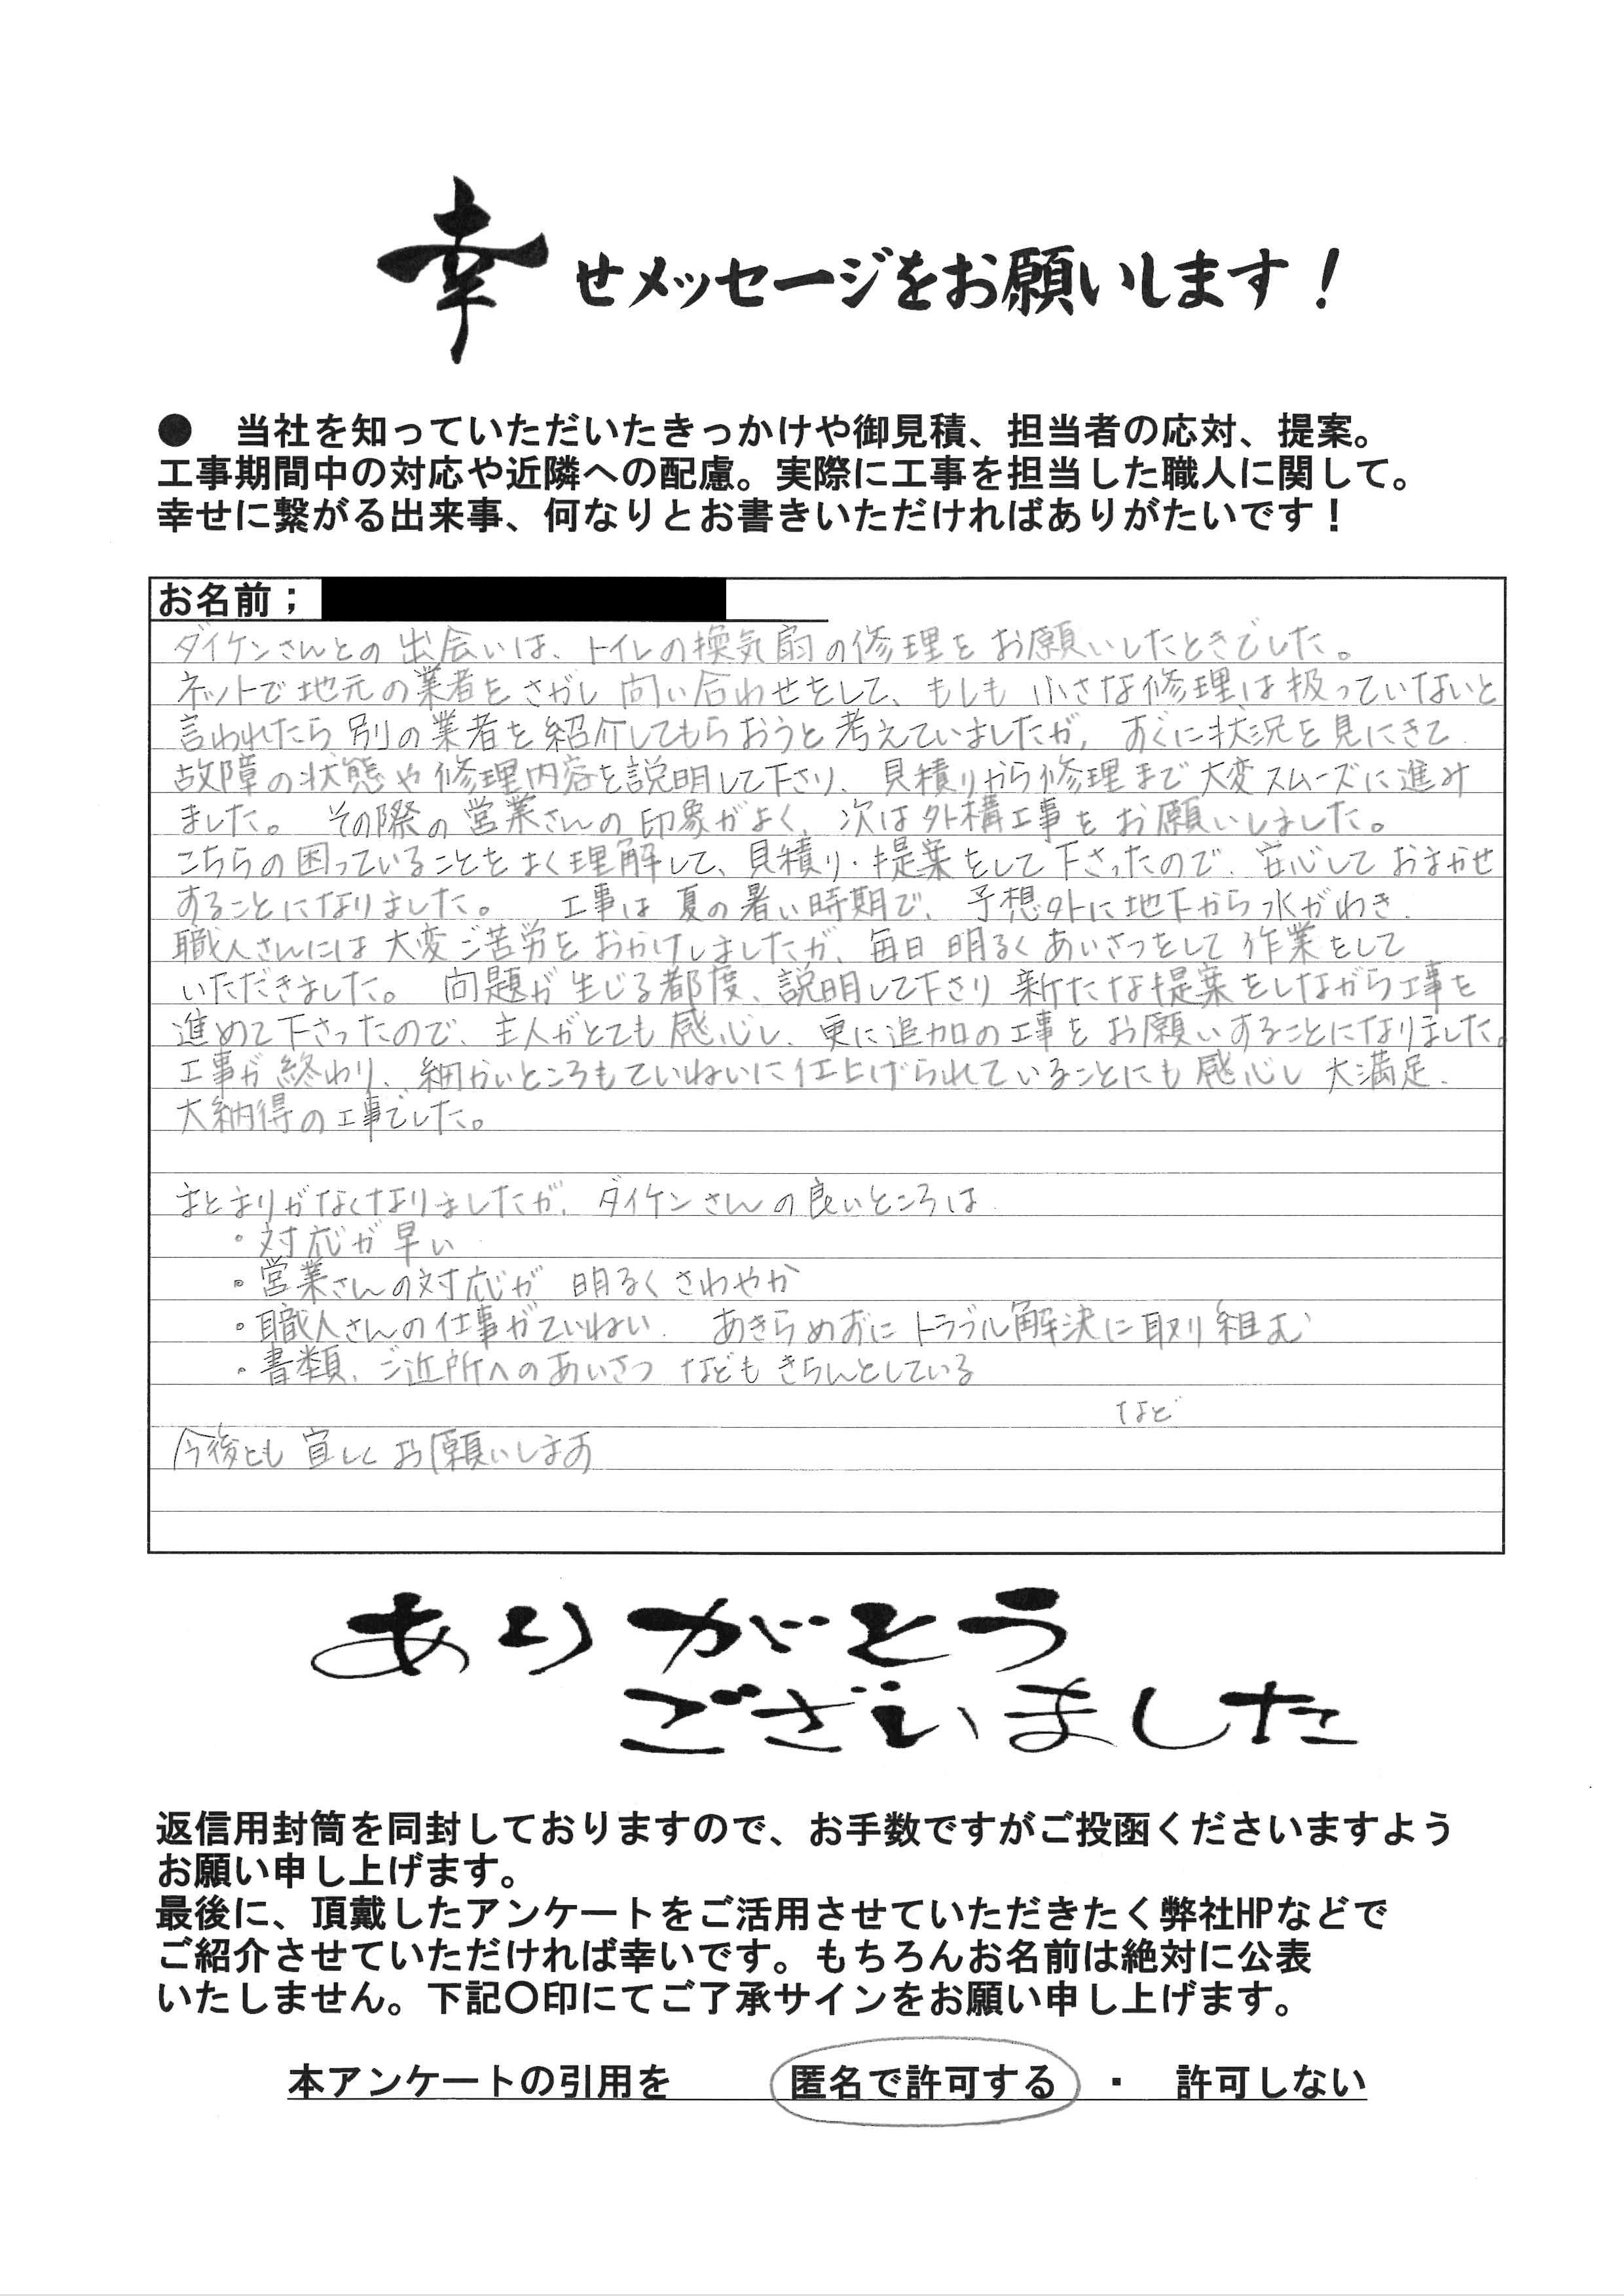 幸せメッセージをお願いします！
● 当社を知っていただいたきっかけや御見積、担当者の応対、提案。
工事期間中の対応や近隣への配慮。実際に工事を担当した職人に関して。
幸せに繋がる出来事、何なりとお書きいただければありがたいです！
お名前；
ダイケンさんとの出会いは、トイレの換気扇の修理をお願いしたときでした。
ネットで地元の業者をさがし問い合わせをして、もしも小さな修理は扱っていないと
言われたら別の業者を紹介してもらおうと考えていましたが、すぐに状況を見にきて
故障の状態や修理内容を説明して下さり、見積りから修理まで大変スムーズに進み
ました。 その際の営業さんの印象がよく、次は外構工事をお願いしました。
こちらの困っていることをよく理解して、見積り・提案をして下さったので、安心しておまかせ
することになりました。 工事は夏の暑い時期で、予想外に地下から水がわき、
職人さんには大変ご苦労をおかけしましたが、毎日明るくあいさつをして作業をして
いただきました。 問題が生じる都度、説明して下さり新たな提案をしながら工事を
進めて下さったので、主人がとても感心し、更に追加の工事をお願いすることになりました。
工事が終わり、細かいところもていねいに仕上げられていることにも感心し大満足、
大納得の工事でした。
まとまりがなくなりましたが、ダイケンさんの良いところは
・対応が早い
・営業さんの対応が明るくさわやか
・職人さんの仕事がていねい、あきらめずにトラブル解決に取り組む
・書類、ご近所へのあいさつなどもきちんとしている
など
今後とも宜しくお願いします
ありがとう
ございました
返信用封筒を同封しておりますので、お手数ですがご投函くださいますよう
お願い申し上げます。
最後に、頂戴したアンケートをご活用させていただきたく弊社HPなどで
ご紹介させていただければ幸いです。もちろんお名前は絶対に公表
いたしません。下記〇印にてご了承サインをお願い申し上げます。
本アンケートの引用を 匿名で許可する ・ 許可しない